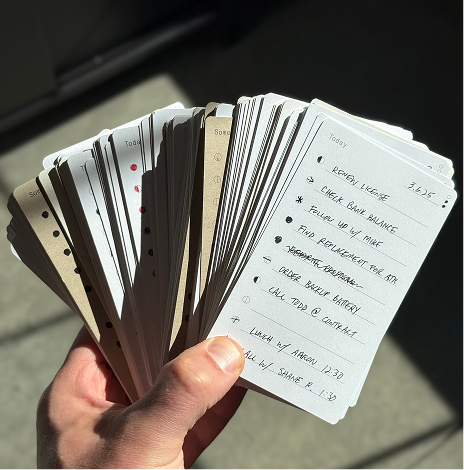 Some
Today
Some
Today
3.6.25
RENEW LICENSE
CHECK BANK BALANCE
FOLLOW UP W/ MIKE
FIND REPLACEMENT FOR
ORDER BACKUP BATTERY
CALL TODD @ CONTRACT
LUNCH W/ AARON 12:30
ALL W/ SHANE R. 1:30